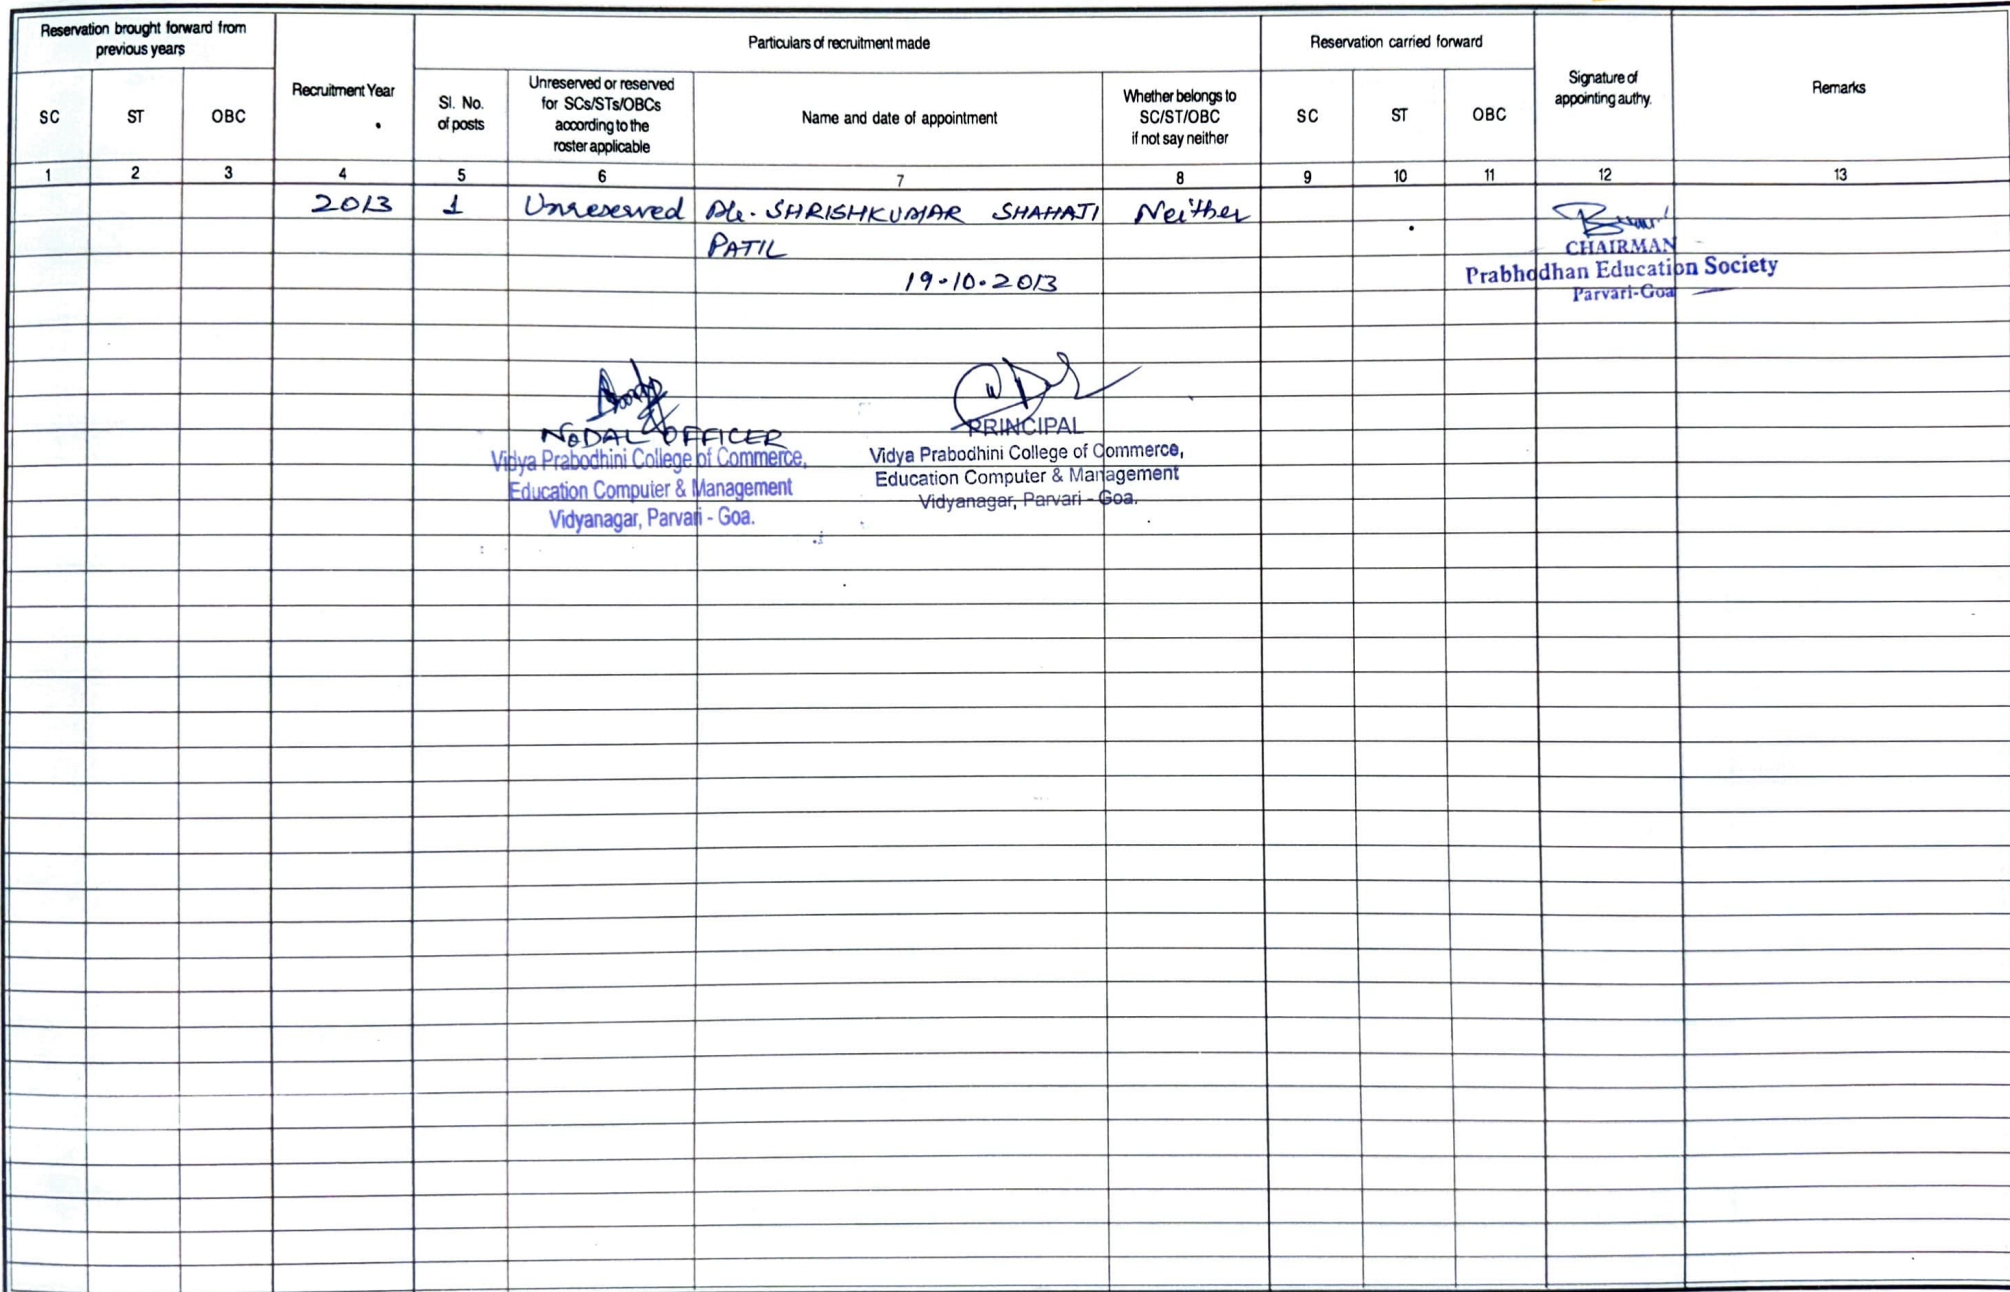 Reservation brought forward from
previous years
Recruitment Year
Particulars of recruitment made
Reservation carried forward
Signature of
appointing authy.
Remarks
SC
ST
OBC
Sl. No.
of posts
Unreserved or reserved
for SCs/STs/OBCs
according to the
roster applicable
Name and date of appointment
Whether belongs to
SC/ST/OBC
if not say neither
SC
ST
OBC
1 2 3 4 5 6 7 8 9 10 11 12 13
2013 1 Unreserved SHRISHKUMAR SHAHAJI Neither
PATIL
19.10.2013
CHAIRMAN
Prabhodhan Education Society
Parvari-Goa
NODAL OFFICER
Vidya Prabodhini College of Commerce,
Education Computer & Management
Vidyanagar, Parvari - Goa.
PRINCIPAL
Vidya Prabodhini College of Commerce,
Education Computer & Management
Vidyanagar, Parvari - Goa.